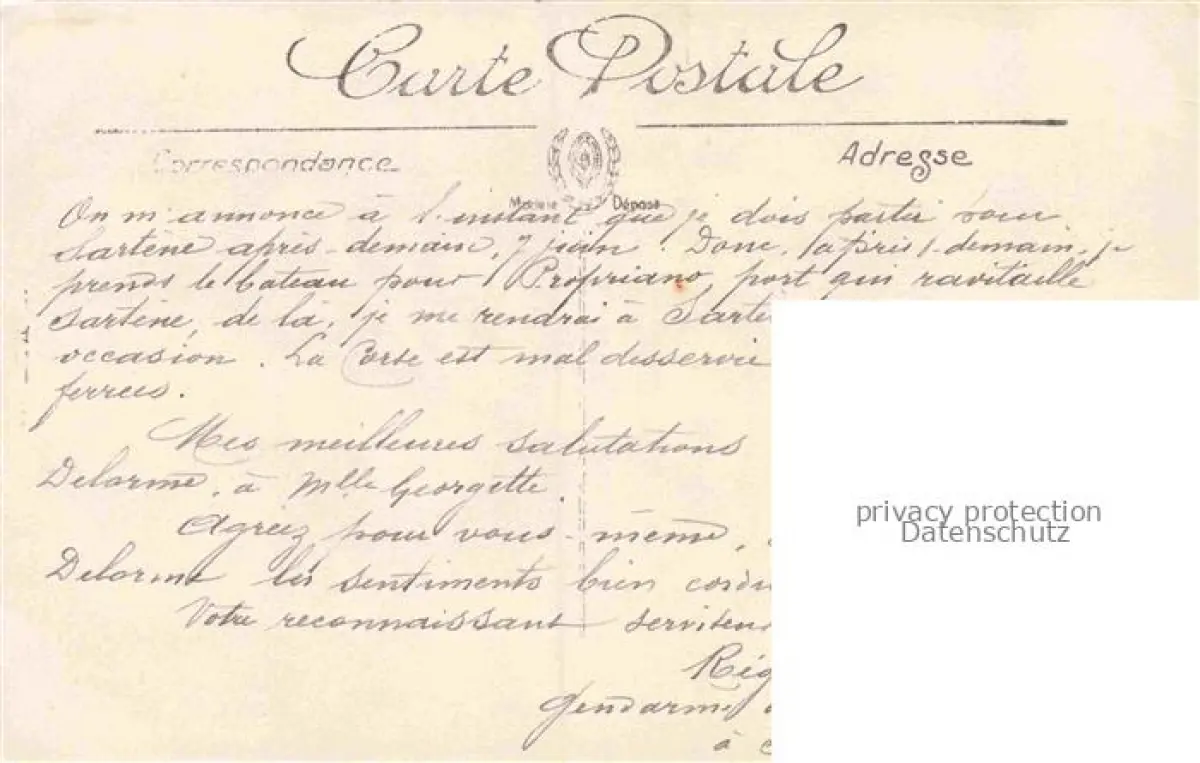 Carte Postale
Correspondance
Adresse
Modèle Déposé
On m'annonce à l'instant que je dois partir pour
Sartène après-demain, 7 juin. Donc, après-demain, je
prends le bateau pour Propriano, port qui ravitaille
Sartène, de là, je me rendrai à Sartè
occasion. La Corse est mal desservie
ferrées.
Mes meilleures salutations
Delorme, à Mlle Georgette.
Agréez pour vous-même,
Delorme les sentiments bien cordi
Votre reconnaissant serviteur
Rég
Gendarme
à
privacy protection
Datenschutz